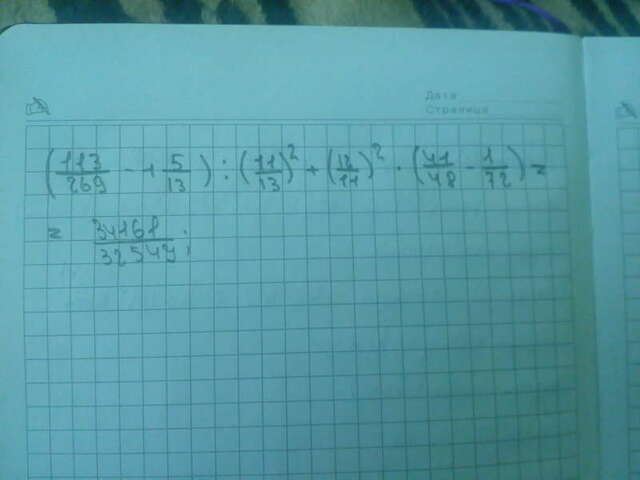 Дата
Страница
(113/269 - 1 5/13) : (11/13)² + (12/11)² · (41/48 - 1/72) =
= 34161/32549;